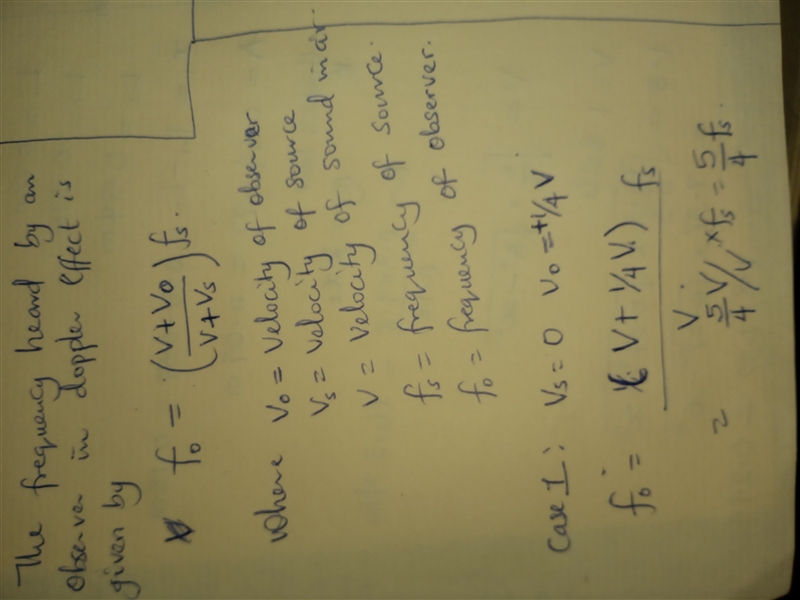 The frequency heard by an
Observer in doppler effect is
given by
fo = (V+Vo / V+Vs) fs.
where Vo = velocity of observer
Vs = velocity of source
V = velocity of sound in air
fs = frequency of source.
fo = frequency of observer.
Case I: Vs = 0 Vo = +1/4 V
fo = (V + 1/4 V) fs
V
= 5/4 V/V × fs = 5/4 fs.